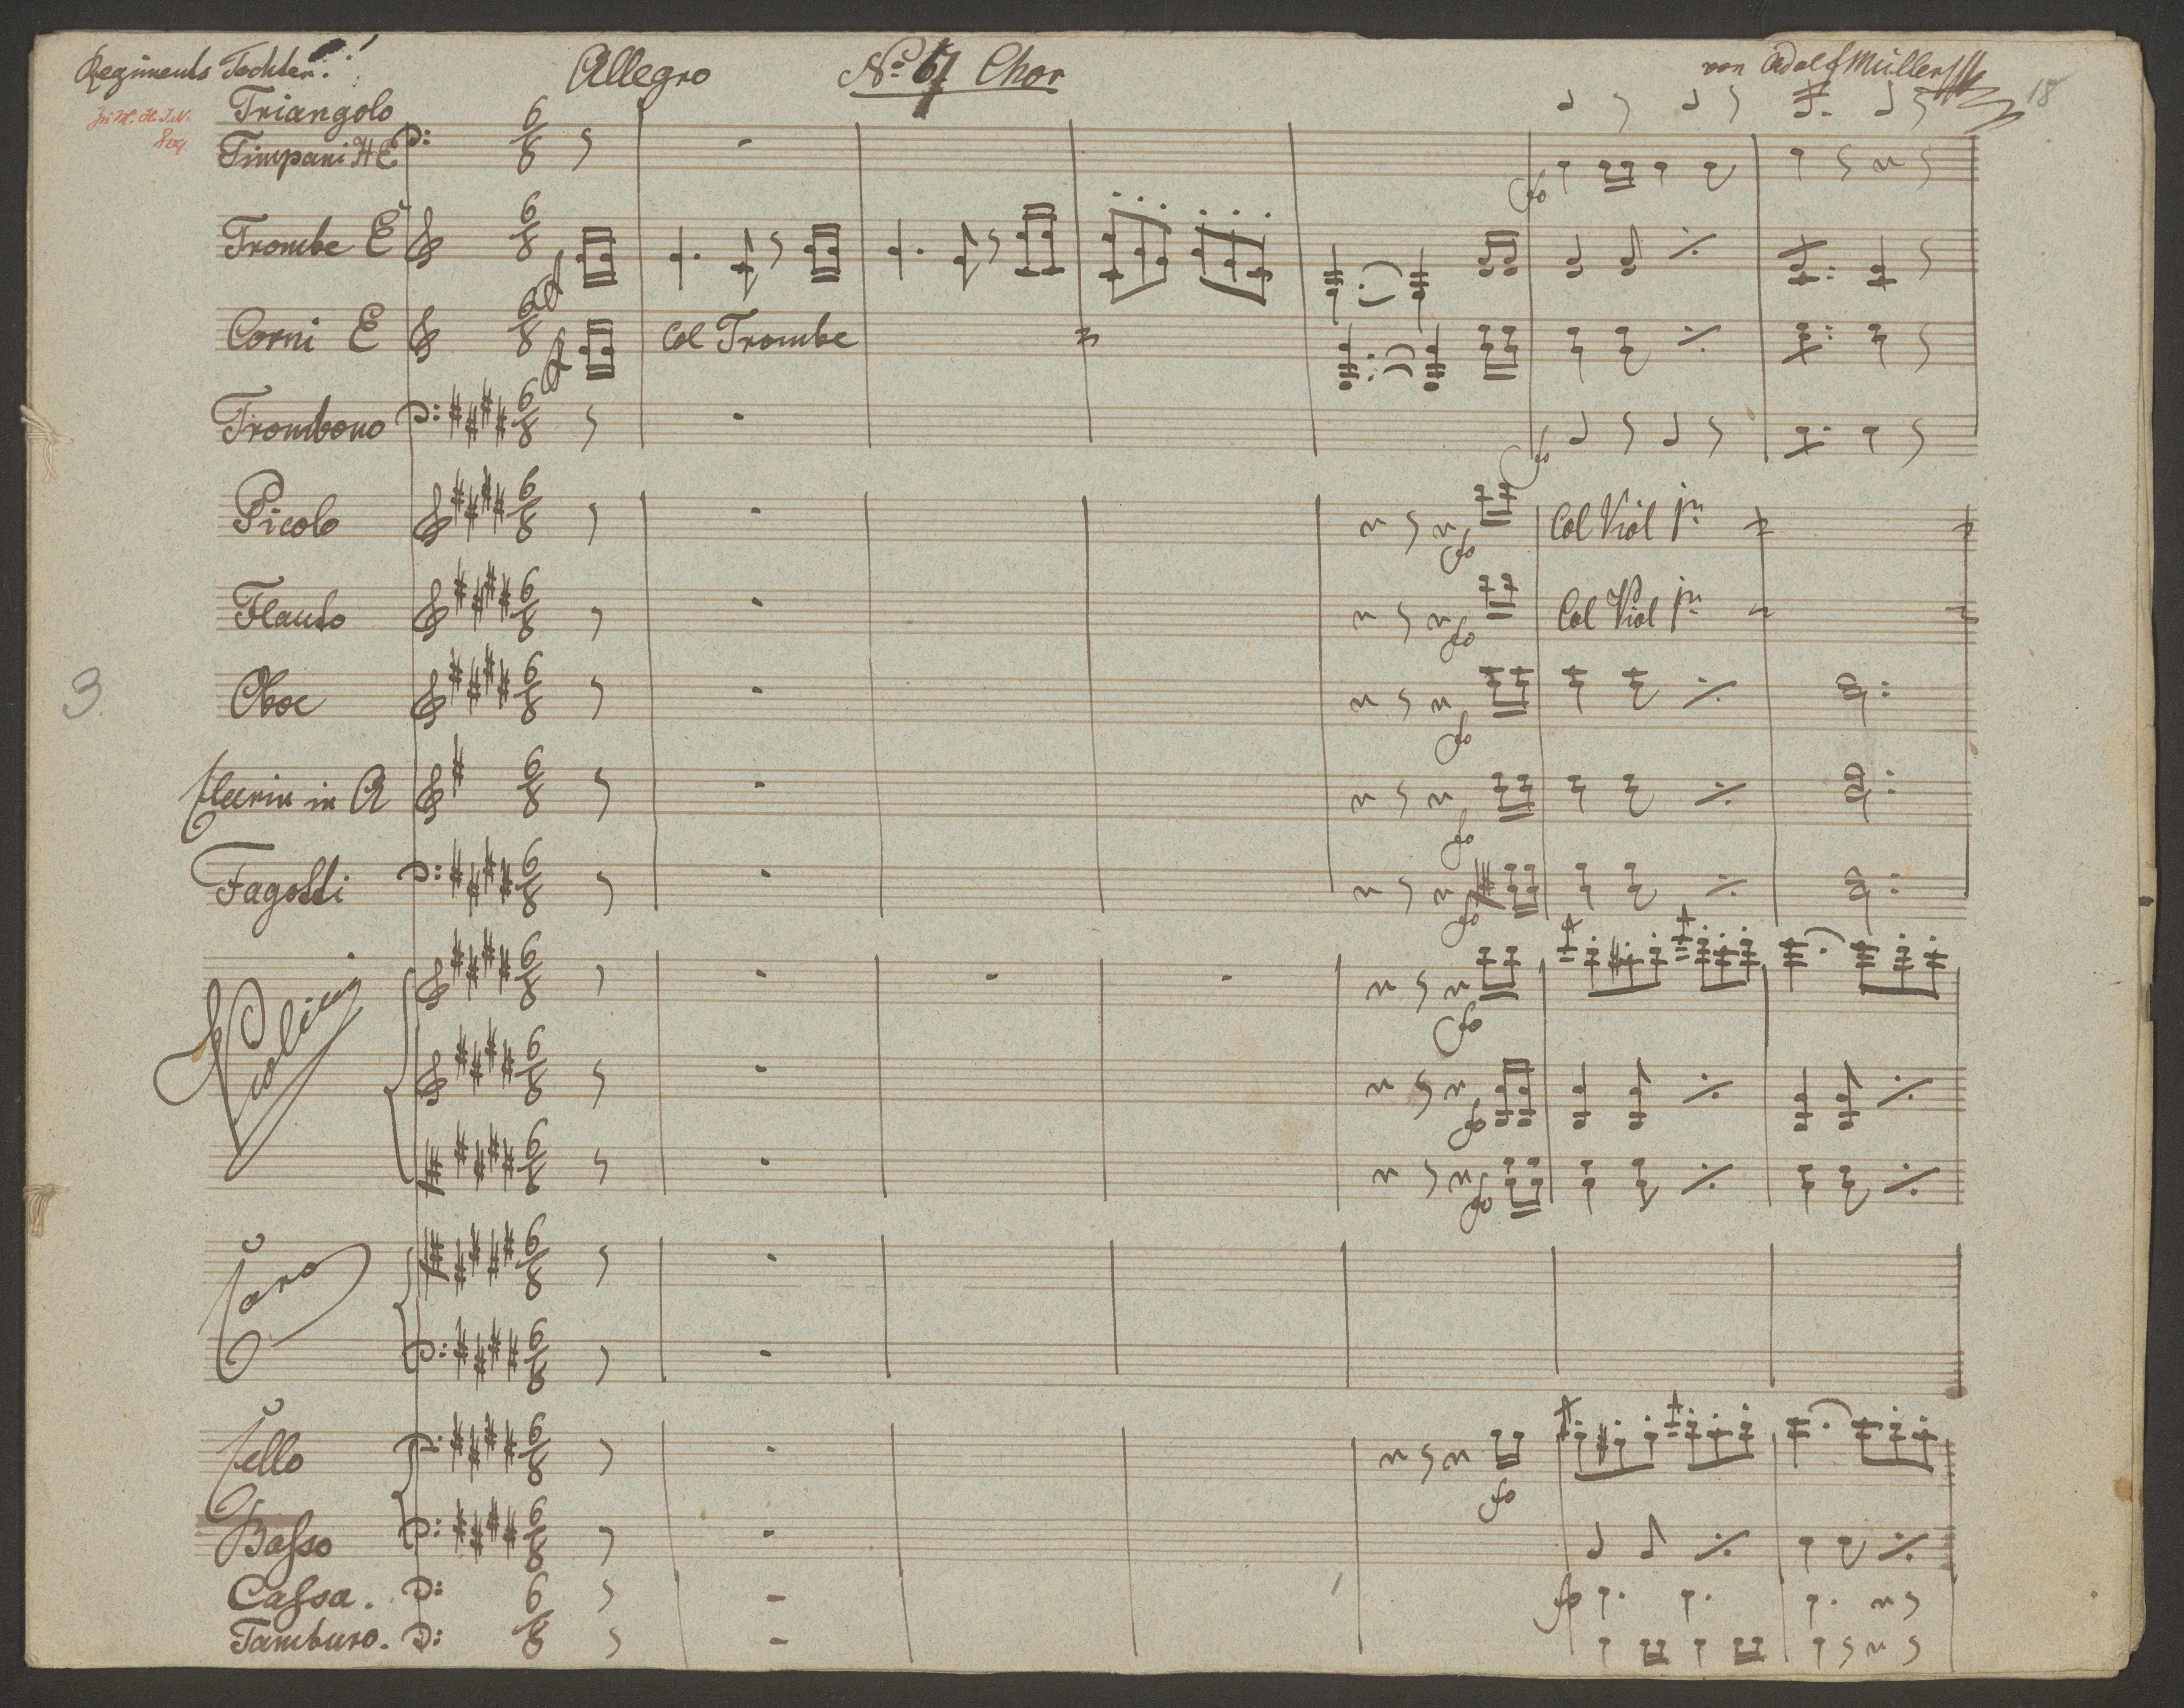 Regiments Tochter.
Allegro
No 67 Chor
von Adolf Müller
18
Triangolo
809
Timpani H E
Trombe E
Corni E
Col Trombe
Trombono
Picolo
Col Viol 1mo
Flauto
Col Viol 1mo
Oboe
3
Clarin in A
Fagotti
Violini
Coro
Cello
Baſso
Caſsa.
Tamburo.